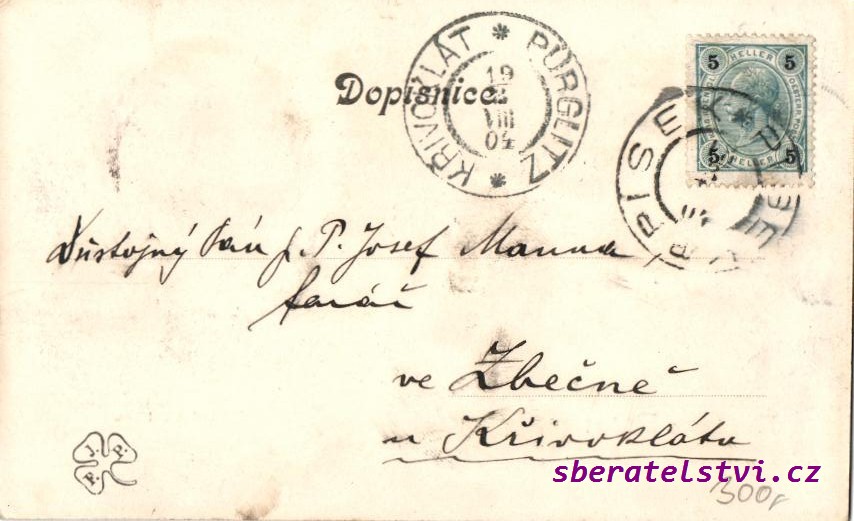 Dopisnice.
KŘIVOKLÁT * PÜRGLITZ *
19
VIII
04
5 HELLER 5
5 HELLER 5
PISEK
Důstojný Pán
J. P. Josef Manna,
farář
ve Zbečně
u Křivoklátu
J. P. P.
sberatelstvi.cz
300,